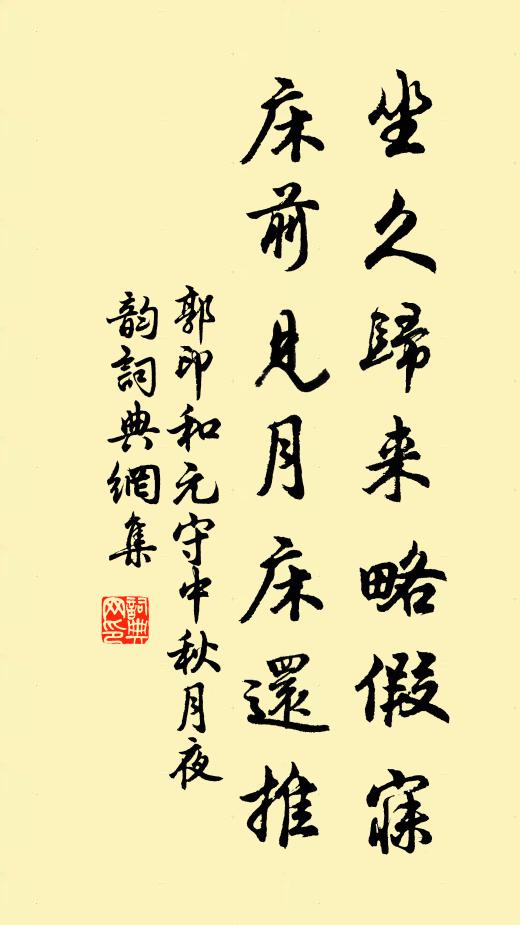 坐久歸来略假寐
床前見月床還推
郭印和元守中秋月夜
韵詞典網集
詞典
网印